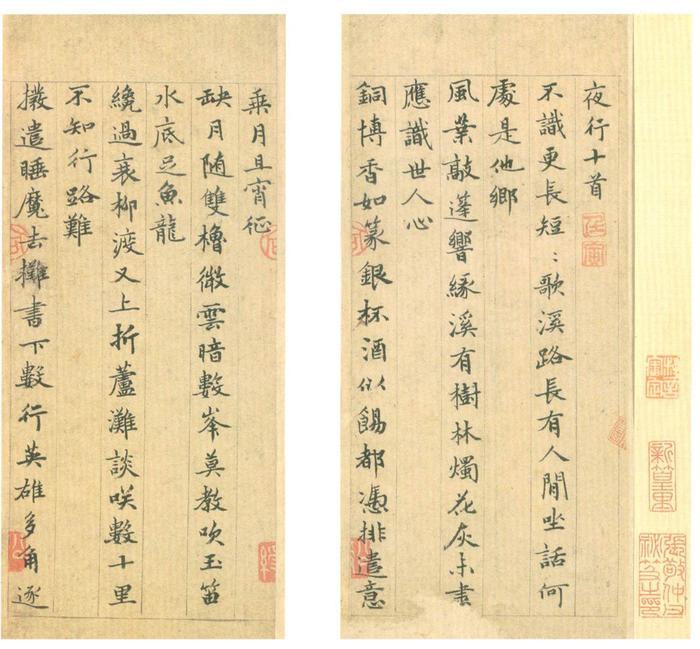 夜行十首
不識更長短〻歌溪路長有人閒坐話何
處是他鄉
風葉敲蓬響緣溪有樹林燭花灰未盡
應識世人心
銅博香如篆銀杯酒似餳都憑排遣意
乘月且宵征
缺月随雙櫓微雲暗數峯莫教吹玉笛
水底足魚龍
纔過衰柳渡又上折蘆灘談咲數十里
不知行路難
撥遣睡魔去攤書下數行英雄多角逐